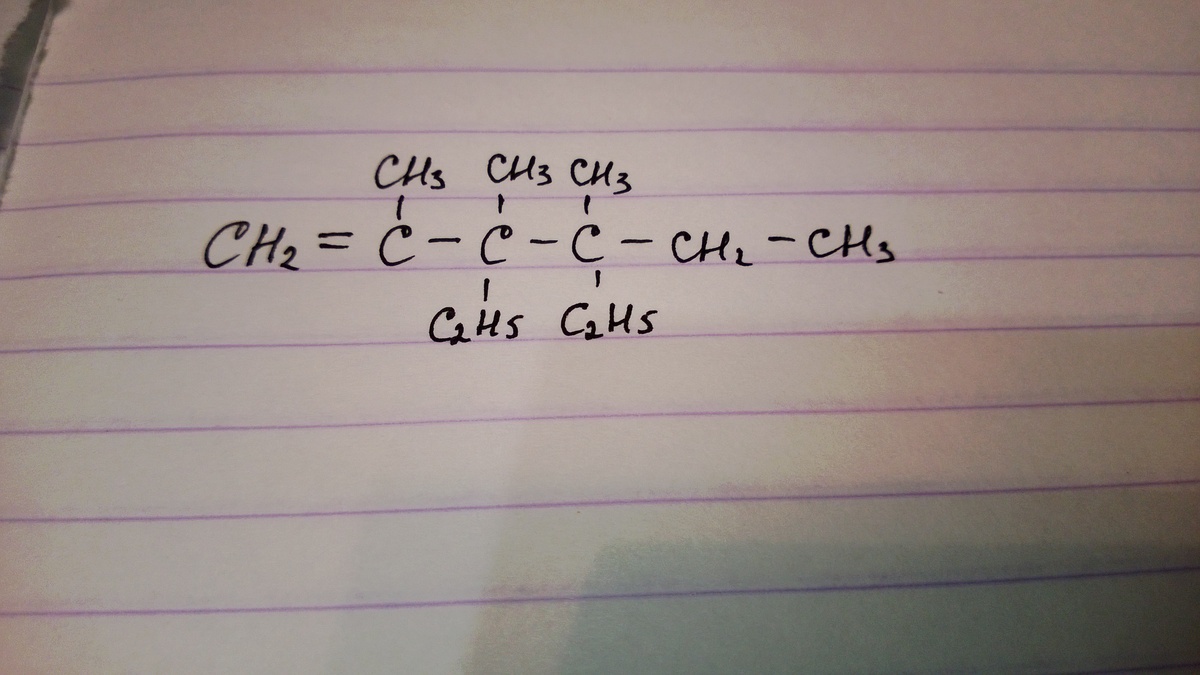 CH3 CH3 CH3
CH2 = C - C - C - CH2 - CH3
C2H5 C2H5